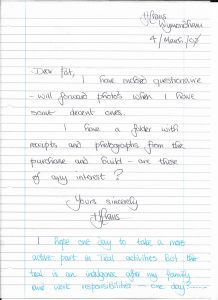 Wymondham
4/March/98
Dear Pat,
I have enclosed questionnaire
- will forward photos when I have
some decent ones.
I have a folder with
receipts and photographs from the
purchase and build - are these
of any interest?
Yours sincerely
I hope one day to take a more
active part in Trial activities but the
trial is an indulgence after my family
and work responsibilities - one day